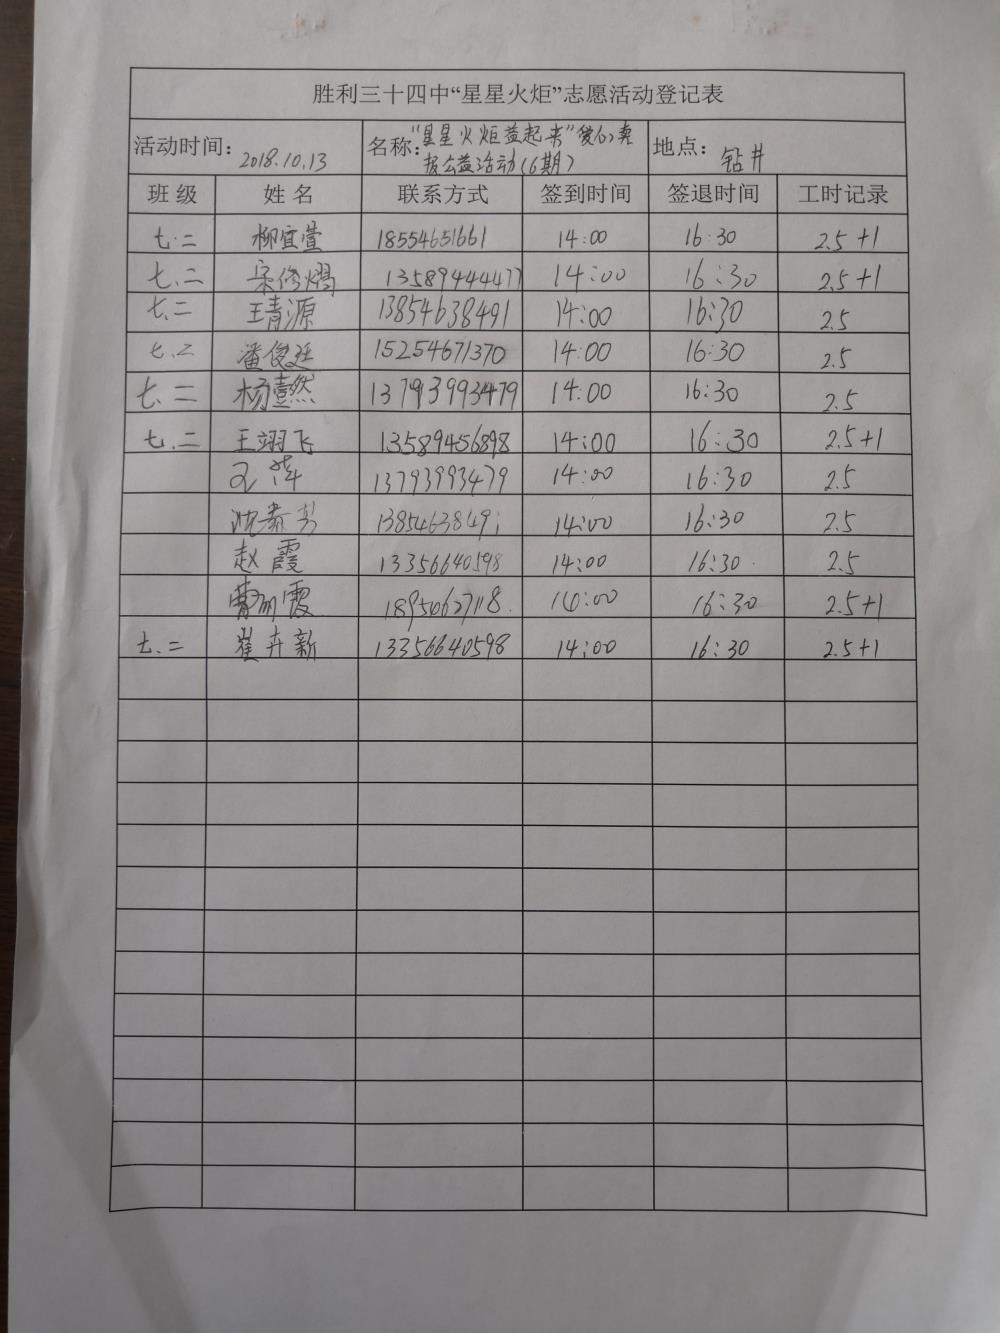 胜利三十四中“星星火炬”志愿活动登记表
活动时间：2018.10.13 名称：“星星火炬益起来”爱心卖报公益活动(6期) 地点：钻井
班级 姓名 联系方式 签到时间 签退时间 工时记录
七.二 柳宜萱 18554651661 14:00 16:30 2.5+1
七.二 宋俊熠 13589444477 14:00 16:30 2.5+1
七.二 王靖源 13854638491 14:00 16:30 2.5
七.二 潘俊廷 15254671370 14:00 16:30 2.5
七.二 杨懿然 13793993479 14:00 16:30 2.5
七.二 王翊飞 13589456898 14:00 16:30 2.5+1
13793993479 14:00 16:30 2.5
1385463849 14:00 16:30 2.5
赵霞 13356640598 14:00 16:30 2.5
霞 18950627118 14:00 16:30 2.5+1
七.二 崔卉新 13356640598 14:00 16:30 2.5+1